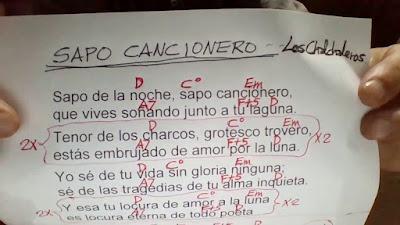 SAPO CANCIONERO - Los Chalchaleros
D C° Em
Sapo de la noche, sapo cancionero,
A7 F+5 D
que vives soñando junto a tu laguna.
D C° Em
2x Tenor de los charcos, grotesco trovero, x2
A7 F+5 D
estás embrujado de amor por la luna.
D C° Em
Yo sé de tu vida sin gloria ninguna;
A7 F+5 D
sé de las tragedias de tu alma inquieta.
D C° Em
2x Y esa tu locura de amor a la luna x2
A7 F+5 D
es locura eterna de todo poeta